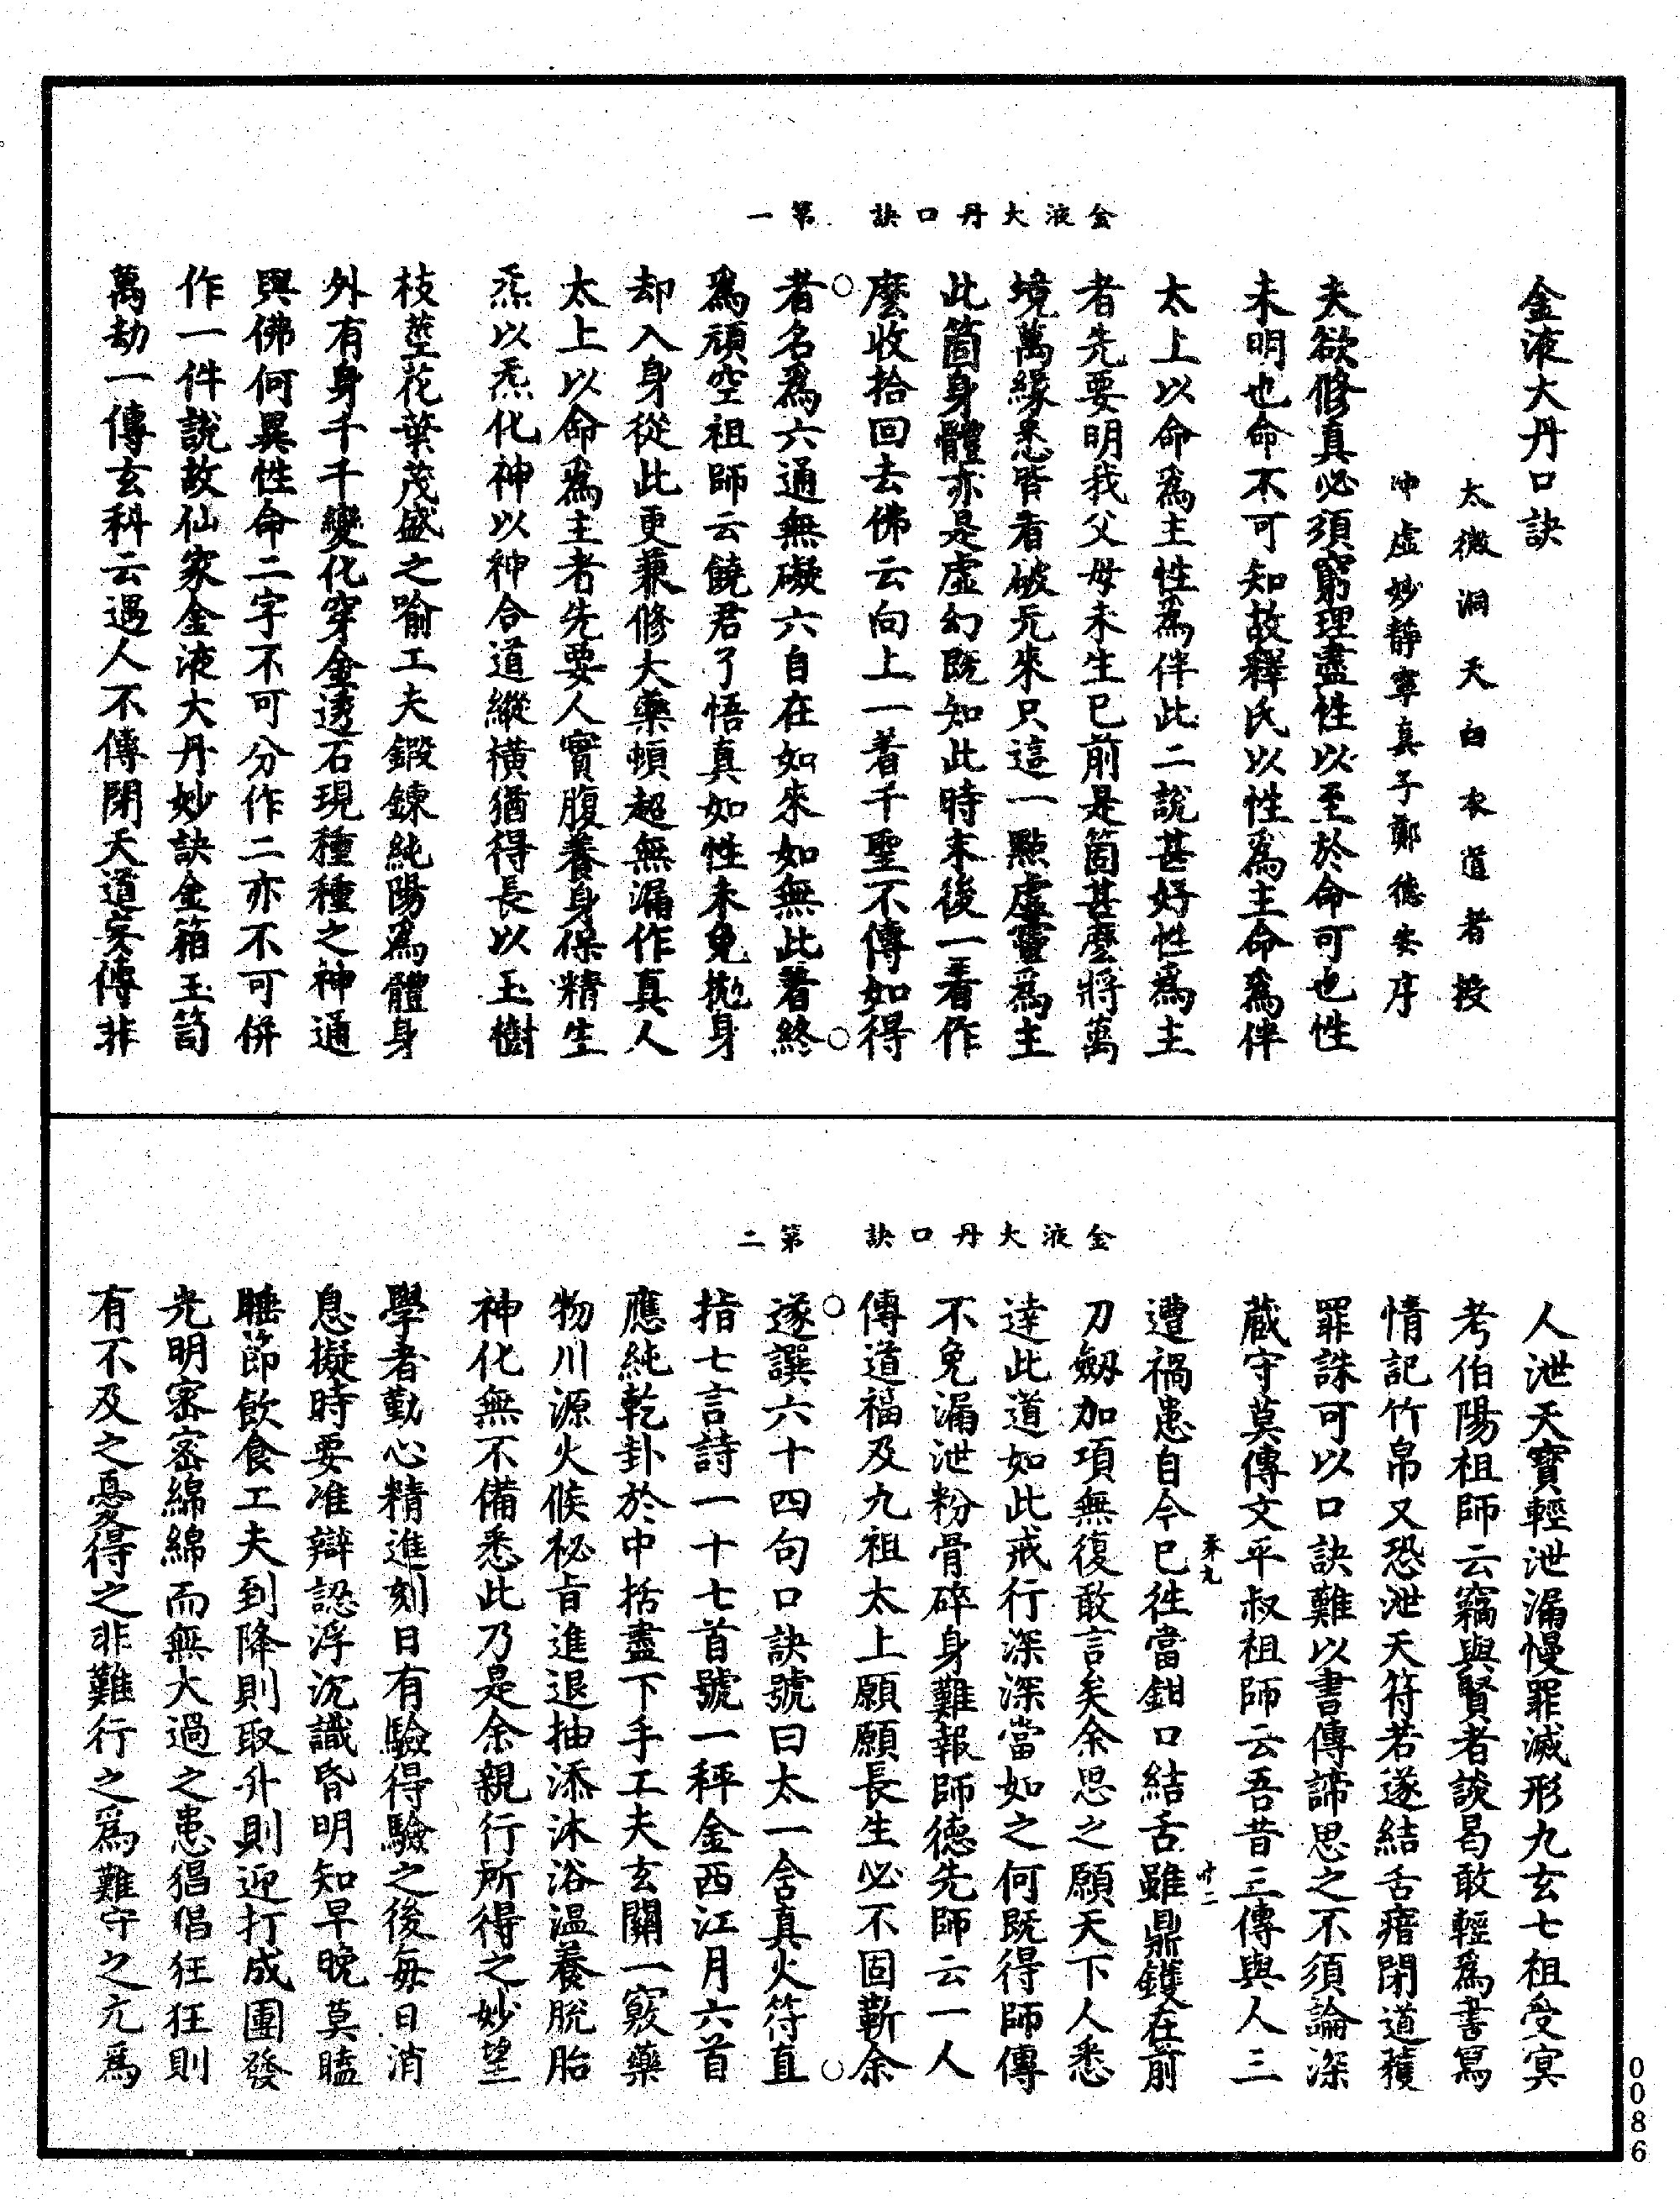 金液大丹口訣 第一
金液大丹口訣
太微洞天白衣道者授
冲虛妙靜寧真子鄭德安序
夫欲修真必須窮理盡性以至於命可也性
未明也命不可知故釋氏以性爲主命爲伴
太上以命爲主性爲伴此二說甚好性爲主
者先要明我父母未生已前是箇甚麼將萬
境萬緣悉皆看破元來只這一點虛靈爲主
此箇身體亦是虛幻既知此時末後一着作
麼收拾回去佛云向上一着千聖不傳如得
者名爲六通無礙六自在如來如無此着終
爲頑空祖師云饒君了悟真如性未免拋身
却入身從此更兼修大藥頓超無漏作真人
太上以命爲主者先要人實腹養身保精生
炁以炁化神以神合道縱橫猶得長以玉樹
枝莖花葉茂盛之喻工夫鍛鍊純陽爲體身
外有身千千變化穿金透石現種種之神通
與佛何異性命二字不可分作二亦不可併
作一件說故仙家金液大丹妙訣金箱玉笥
萬劫一傳玄科云遇人不傳閉天道妄傳非
金液大丹口訣 第二
人泄天寶輕泄漏慢罪滅形九玄七祖受冥
考伯陽祖師云竊與賢者談曷敢輕爲書寫
情記竹帛又恐泄天符若遂結舌瘖閉道獲
罪誅可以口訣難以書傳諦思之不須論深
藏守莫傳文平叔祖師云吾昔三傳與人三
遭禍患自今已徃當鉗口結舌雖鼎鑊在前
刀劔加項無復敢言矣余思之願天下人悉
達此道如此戒行深深當如之何既得師傳
不免漏泄粉骨碎身難報師德先師云一人
傳道福及九祖太上願願長生必不固蘄余
遂譔六十四句口訣號曰太一含真火符直
指七言詩一十七首號一秤金西江月六首
應純乾卦於中括盡下手工夫玄關一竅藥
物川源火候秘旨進退抽添沐浴溫養脫胎
神化無不備悉此乃是余親行所得之妙望
學者勤心精進刻日有驗得驗之後每日消
息擬時要准辯認浮沉識昏明知早晚莫瞌
睡節飲食工夫到降則取升則迎打成團發
光明密密綿綿而無大過之患猖猖狂狂則
有不及之憂得之非難行之爲難守之亢爲
十二
0086